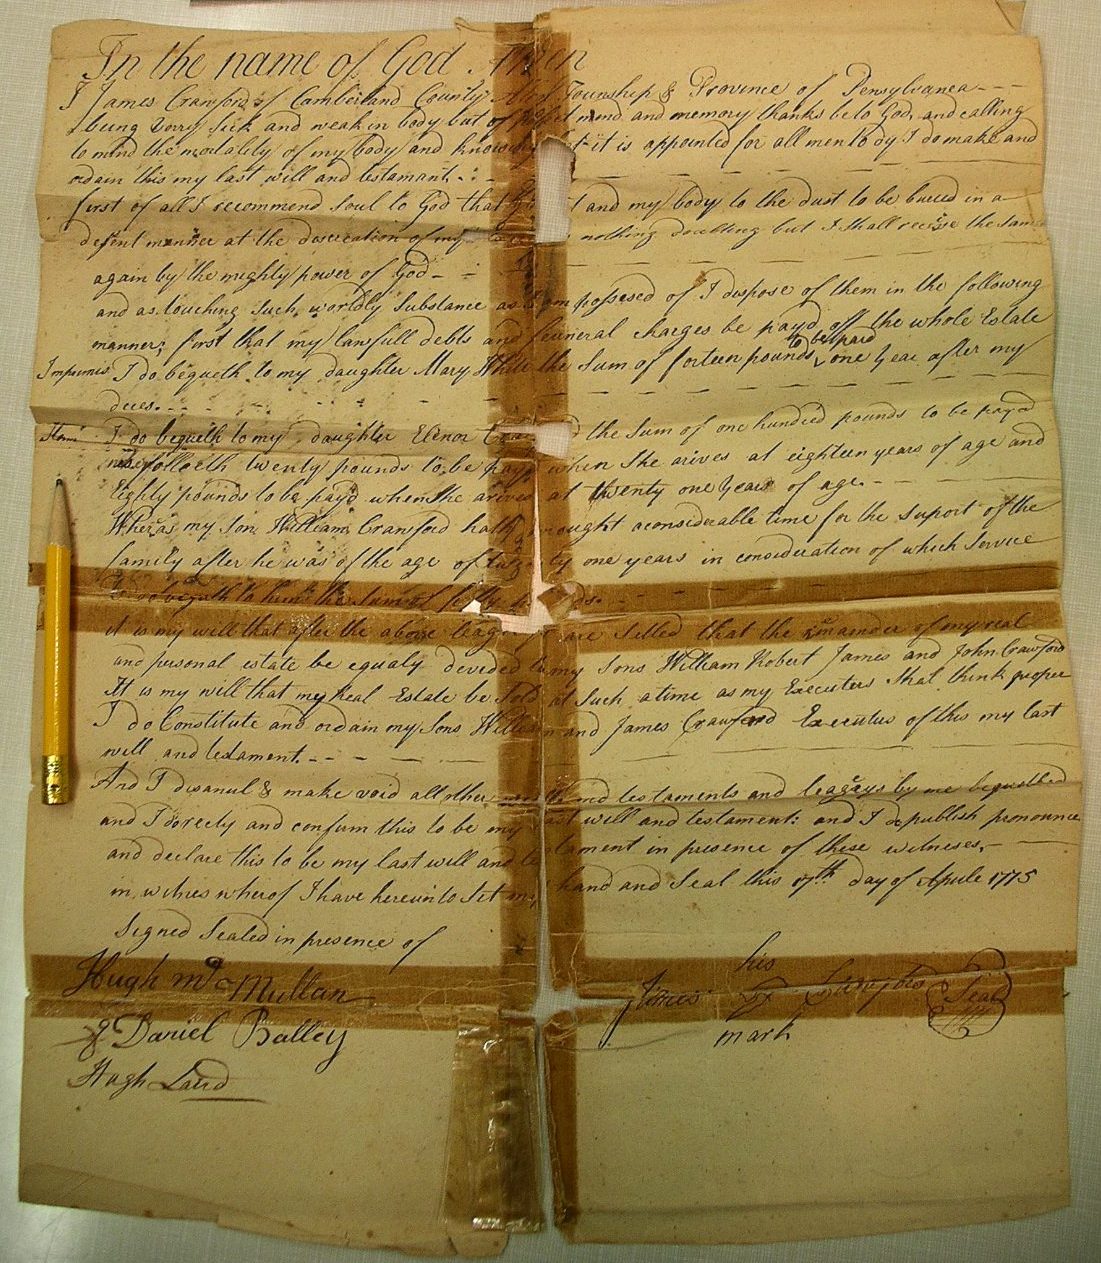 In the name of God Amen
I James Crawford of Camberland County Township & Province of Pensylvanea
being verry sick and weak in body but of mind and memory thanks be to God, and calling
to mind the mortality of my body and knowing it is appointed for all men to dy I do make and
ordain this my last will and testamant
first of all I recommend soul to God that and my body to the dust to be buried in a
desent manner at the discreation of my nothing doubting but I shall receive the same
again by the mighty power of God
and as touching such worldly substance as I am possesed of I dispose of them in the following
manner; first that my lawfull debts and funeral charges be payd off the whole Estate
Imprimis I do begueth to my daughter Mary White the Sum of forteen pounds to be paid one year after my
dices
Item I do begueth to my daughter Elenor the sum of one hundred pounds to be payd
as folloeth twenty pounds to be payd when she arives at eighteen years of age and
Eighty pounds to be payd when she arives at twenty one years of age
Wheras my son William Crawford hath wrought aconsiderable time for the suport of the
family after he was of the age of twenty one years in consideration of which service
I do begueth to him the Sum of
it is my will that after the above are setled that the remander of my real
and personal estate be equaly devided my sons William Robert James and John Crawford
It is my will that my Real Estate be Sold at such a time as my Executers shal think proper
I do Constitute and ordain my sons William and James Crawford Executers of this my last
will and testament
And I disanul & make void all other testaments and leagaeys by me begueathed
and I do rectify and confirm this to be my last will and testament: and I do publish pronounce
and declare this to be my last will and testament in presence of these witneses
in witnes wherof I have hereunto set my hand and seal this 17th day of Aprile 1775
Signed Sealed in presence of
Hugh McMullan
his
James Crawford Seal
mark
Daniel Balley
Hugh Laird